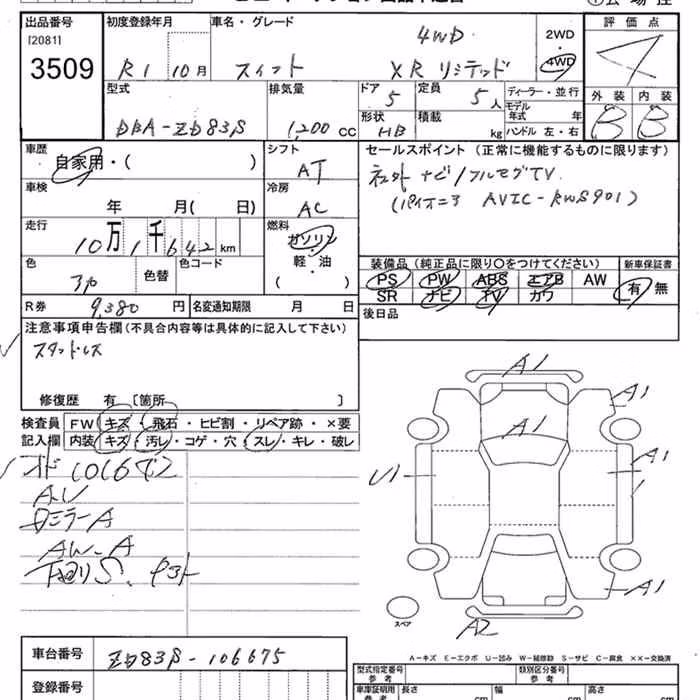 出品番号
[20811]
3509
初度登録年月
R1 10月
車名・グレード
スイフト XRリミテッド
4WD
2WD
4WD
評価点
外装 内装
B B
型式
DBA-ZD83S
排気量
1,200 cc
ドア
5
定員
5人
形状
HB
積載
kg
ディーラー・並行
モデル年式 年
ハンドル 左・右
車歴
自家用・( )
シフト
AT
セールスポイント (正常に機能するものに限ります)
社外 ナビ/フルセグTV
(パイオニア AVIC-RWS901)
車検
年 月( 日)
冷房
AC
走行
10万1千642km
燃料
ガソリン
軽・油
( )
色
色替
色コード
装備品 (純正品に限り〇をつけてください)
新車保証書
PS PW ABS エアB AW
SR ナビ TV カワ
有 無
R券
9,380 円
名変通知期限 月 日
後日品
注意事項申告欄 (不具合内容等は具体的に記入して下さい)
スタッドレス
修復歴 有 [箇所 ]
検査員
記入欄
FW キズ・飛石・ヒビ割・リペア跡・×要
内装 キズ・汚レ・コゲ・穴・スレ・キレ・破レ
AU
DミラーA
AW-A
下廻りS、
A1
A1
A1
A1
U1
A1
A2
スペア
A-キズ E-エクボ U-凹み W-補修跡 S-サビ C-腐食 ××-交換済
車台番号
ZD83S-106675
登録番号
型式指定番号
参考
類別区分番号
参考
車庫証明用
参考
長さ cm
幅 cm
高さ cm